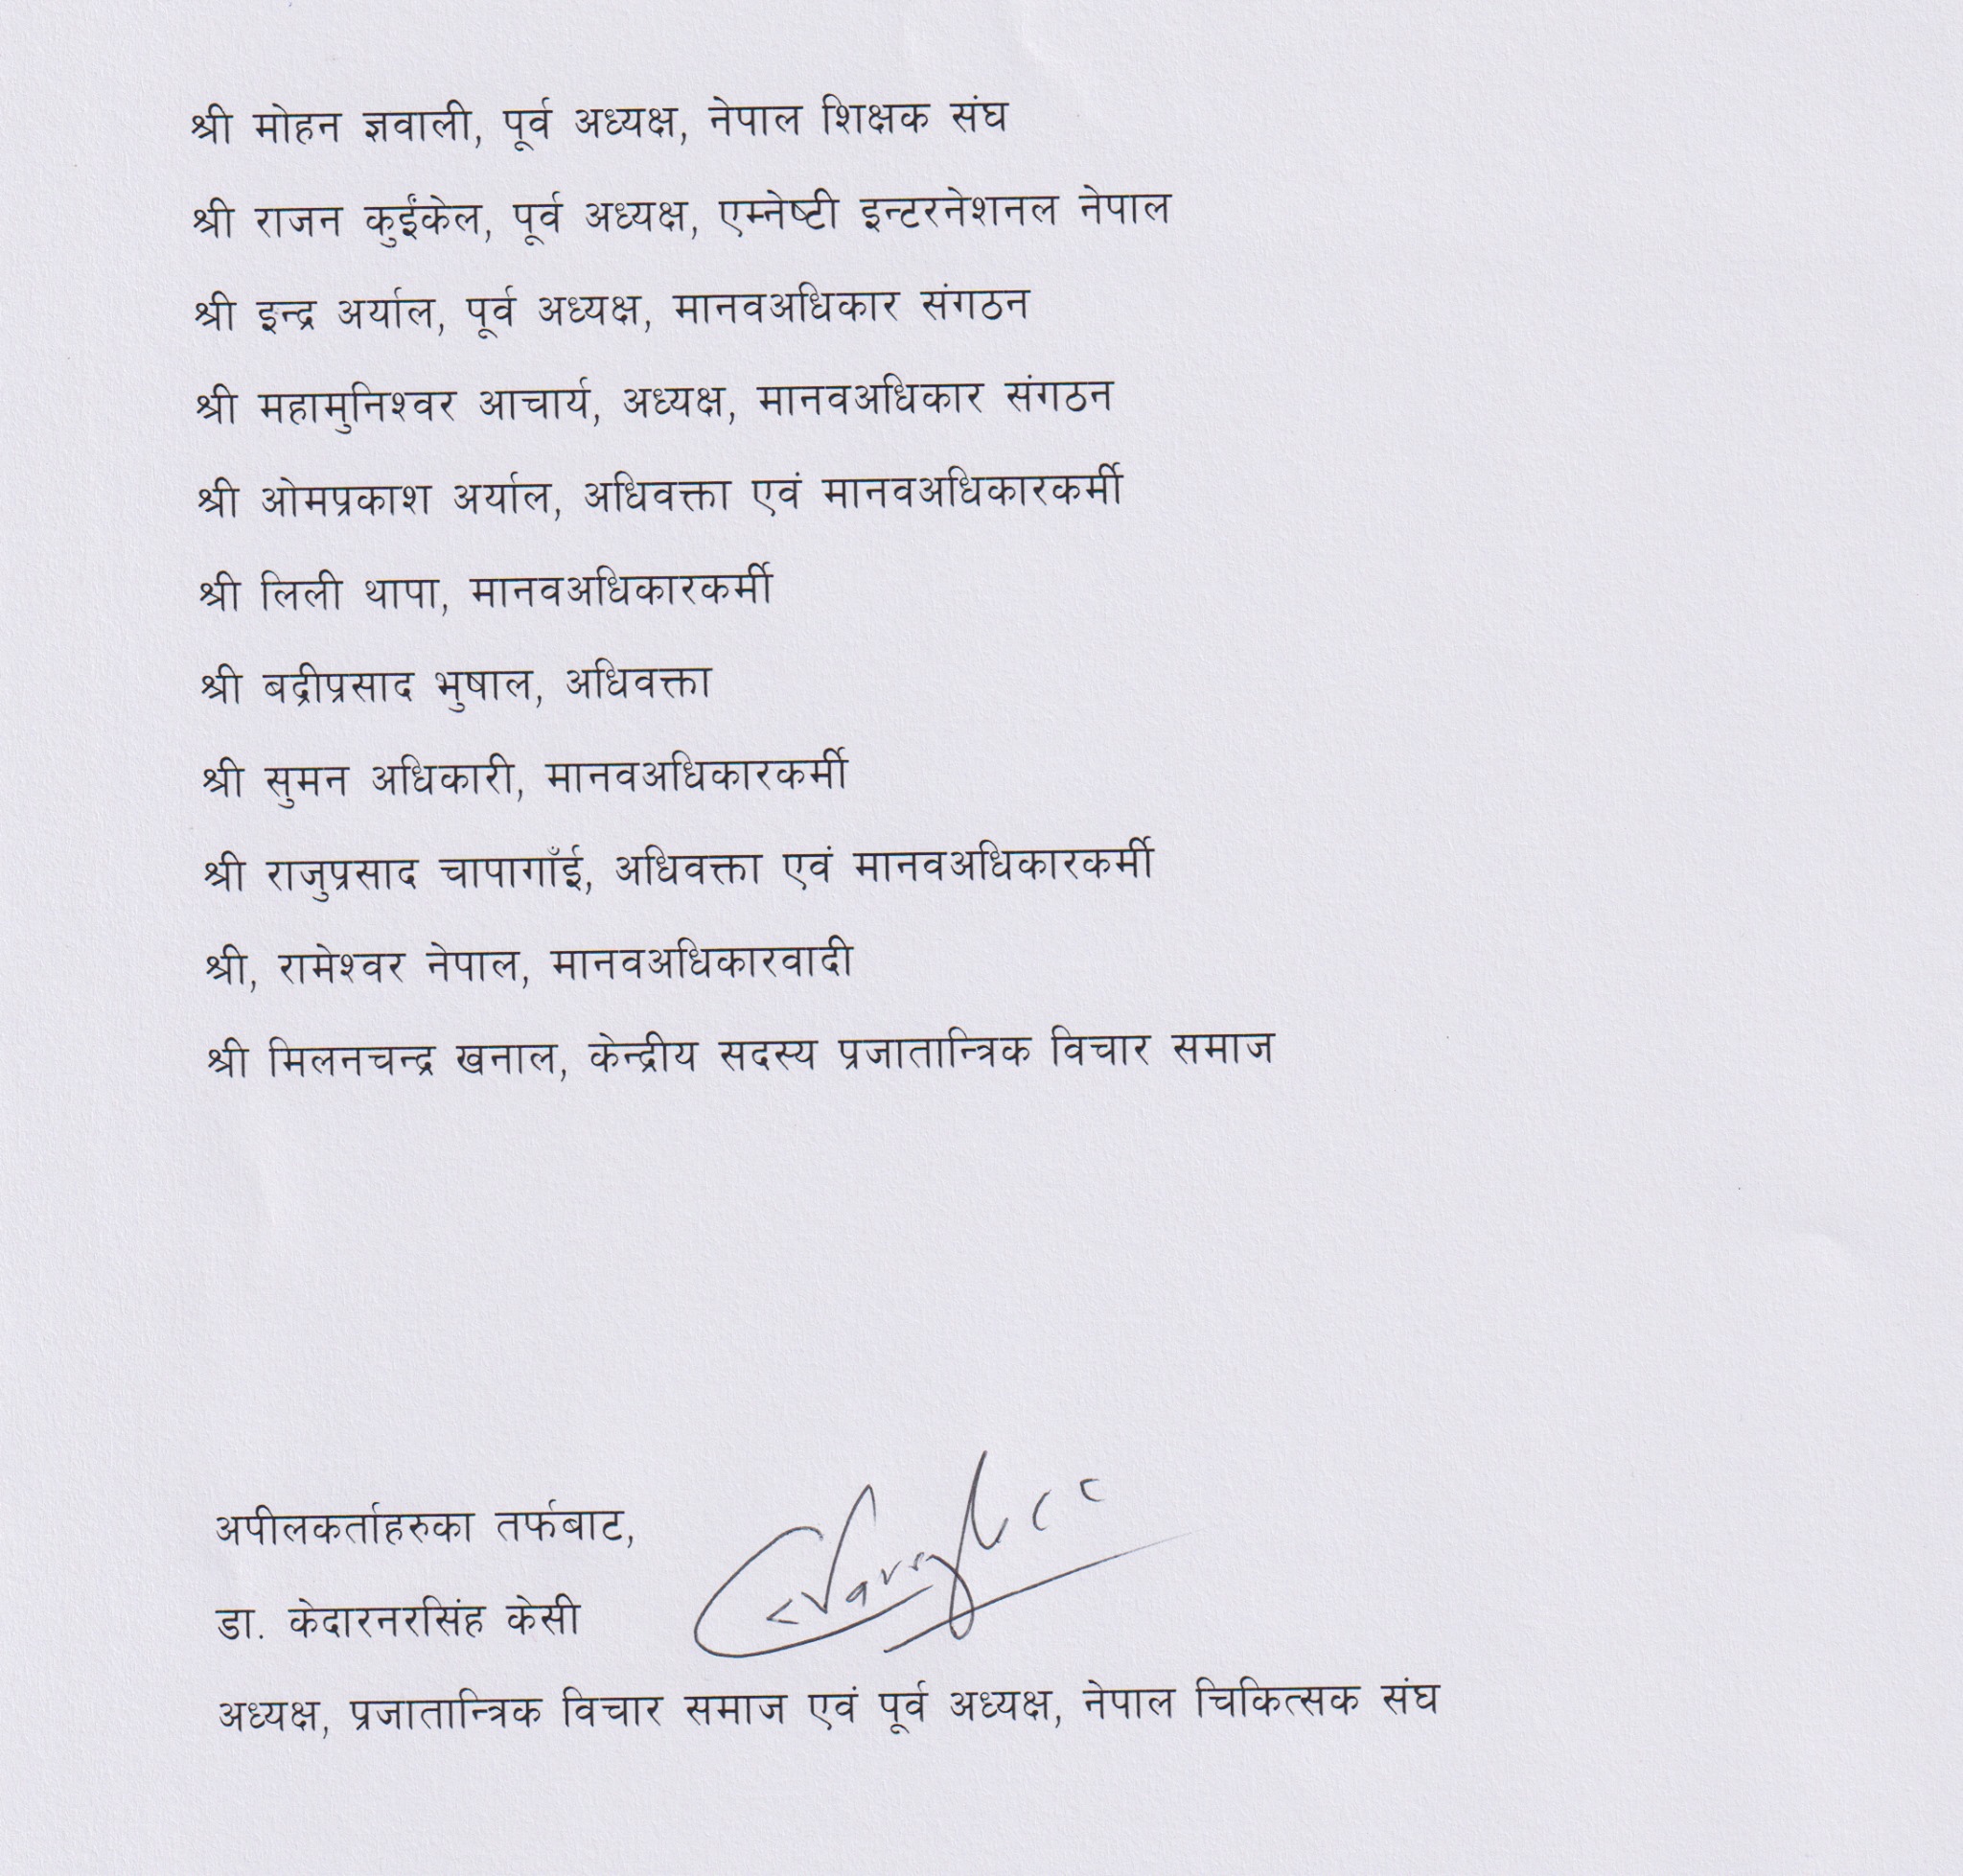 श्री मोहन ज्ञवाली, पूर्व अध्यक्ष, नेपाल शिक्षक संघ
श्री राजन कुईंकेल, पूर्व अध्यक्ष, एम्नेष्टी इन्टरनेशनल नेपाल
श्री इन्द्र अर्याल, पूर्व अध्यक्ष, मानवअधिकार संगठन
श्री महामुनिश्वर आचार्य, अध्यक्ष, मानवअधिकार संगठन
श्री ओमप्रकाश अर्याल, अधिवक्ता एवं मानवअधिकारकर्मी
श्री लिली थापा, मानवअधिकारकर्मी
श्री बद्रीप्रसाद भुषाल, अधिवक्ता
श्री सुमन अधिकारी, मानवअधिकारकर्मी
श्री राजुप्रसाद चापागाँई, अधिवक्ता एवं मानवअधिकारकर्मी
श्री, रामेश्वर नेपाल, मानवअधिकारवादी
श्री मिलनचन्द्र खनाल, केन्द्रीय सदस्य प्रजातान्त्रिक विचार समाज
अपीलकर्ताहरुका तर्फबाट,
डा. केदारनरसिंह केसी
अध्यक्ष, प्रजातान्त्रिक विचार समाज एवं पूर्व अध्यक्ष, नेपाल चिकित्सक संघ